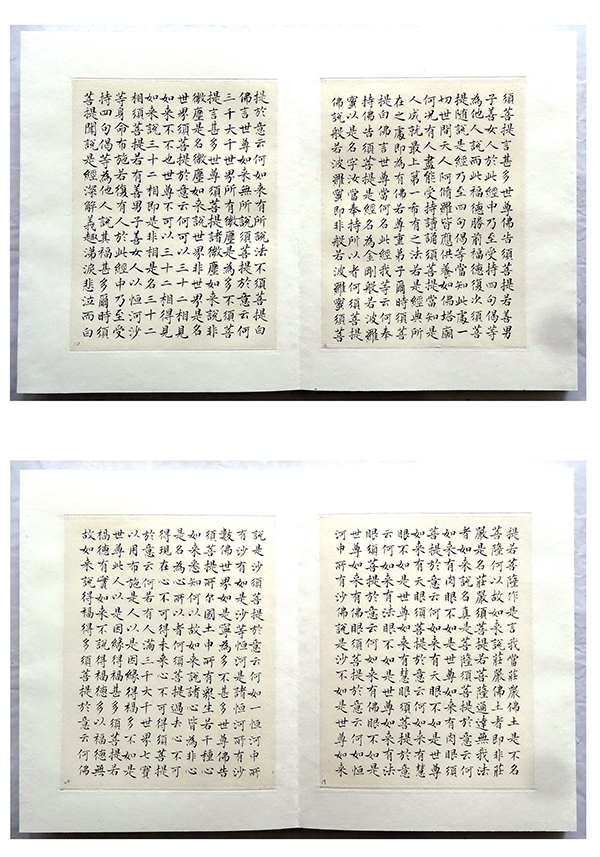 須菩提言甚多世尊佛告須菩提若善男
子善女人於此經中乃至受持四句偈等
為他人說而此福德勝前福德復次須菩
提隨說是經乃至四句偈等當知此處一
切世間天人阿脩羅皆應供養如佛塔廟
何況有人盡能受持讀誦須菩提當知是
人成就最上第一希有之法若是經典所
在之處即為有佛若尊重弟子爾時須菩
提白佛言世尊當何名此經我等云何奉
持佛告須菩提是經名為金剛般若波羅
蜜以是名字汝當奉持所以者何須菩提
佛說般若波羅蜜即非般若波羅蜜須菩
提於意云何如来有所說法不須菩提白
佛言世尊如来無所說須菩提於意云何
三千大千世界所有微塵是為多不須菩
提言甚多世尊須菩提諸微塵如来說非
微塵是名微塵如来說世界非世界是名
世界須菩提於意云何可以三十二相見
如来不不也世尊不可以三十二相得見
如来說三十二相即是非相是名三十二
相須菩提若有善男子善女人以恒河沙
等身命布施若復有人於此經中乃至受
持四句偈等為他人說其福甚多爾時須
菩提聞說是經深解義趣涕淚悲泣而白
提若菩薩作是言我當莊嚴佛土是不名
菩薩何以故如来說莊嚴佛土者即非莊
嚴是名莊嚴須菩提若菩薩通達無我法
者如来說名真是菩薩須菩提於意云何
如来有肉眼不如是世尊如来有肉眼須
菩提於意云何如来有天眼不如是世尊
如来有天眼須菩提於意云何如来有慧
眼不如是世尊如来有慧眼須菩提於意
云何如来有法眼不如是世尊如来有法
眼須菩提於意云何如来有佛眼不如是
世尊如来有佛眼須菩提於意云何如恒
河中所有沙佛說是沙不如是世尊如来
說是沙須菩提於意云何如一恒河中所
有沙有如是沙等恒河是諸恒河所有沙
數佛世界如是寧為多不甚多世尊佛告
須菩提尔所國土中所有衆生若干種心
如来悉知何以故如来說諸心皆為非心
是名為心所以者何須菩提過去心不可
得現在心不可得未来心不可得須菩提
於意云何若有人滿三千大千世界七寶
以用布施是人以是因緣得福多不如是
世尊此人以是因緣得福甚多須菩提若
福德有實如来不說得福德多以福德無
故如来說得福德多須菩提於意云何佛